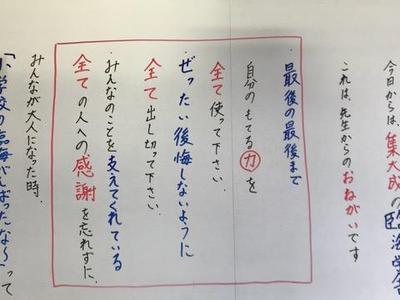 今日からは、集大成の臨海学舎
これは、先生からのおねがいです
最後の最後まで
自分のもてる力を
全て使って下さい。
ぜったい後悔しないように
全て出し切って下さい。
みんなのことを支えてくれている
全ての人への感謝を忘れずに、
みんなが大人になった時、
「小学校の臨海がんばったな〜」って